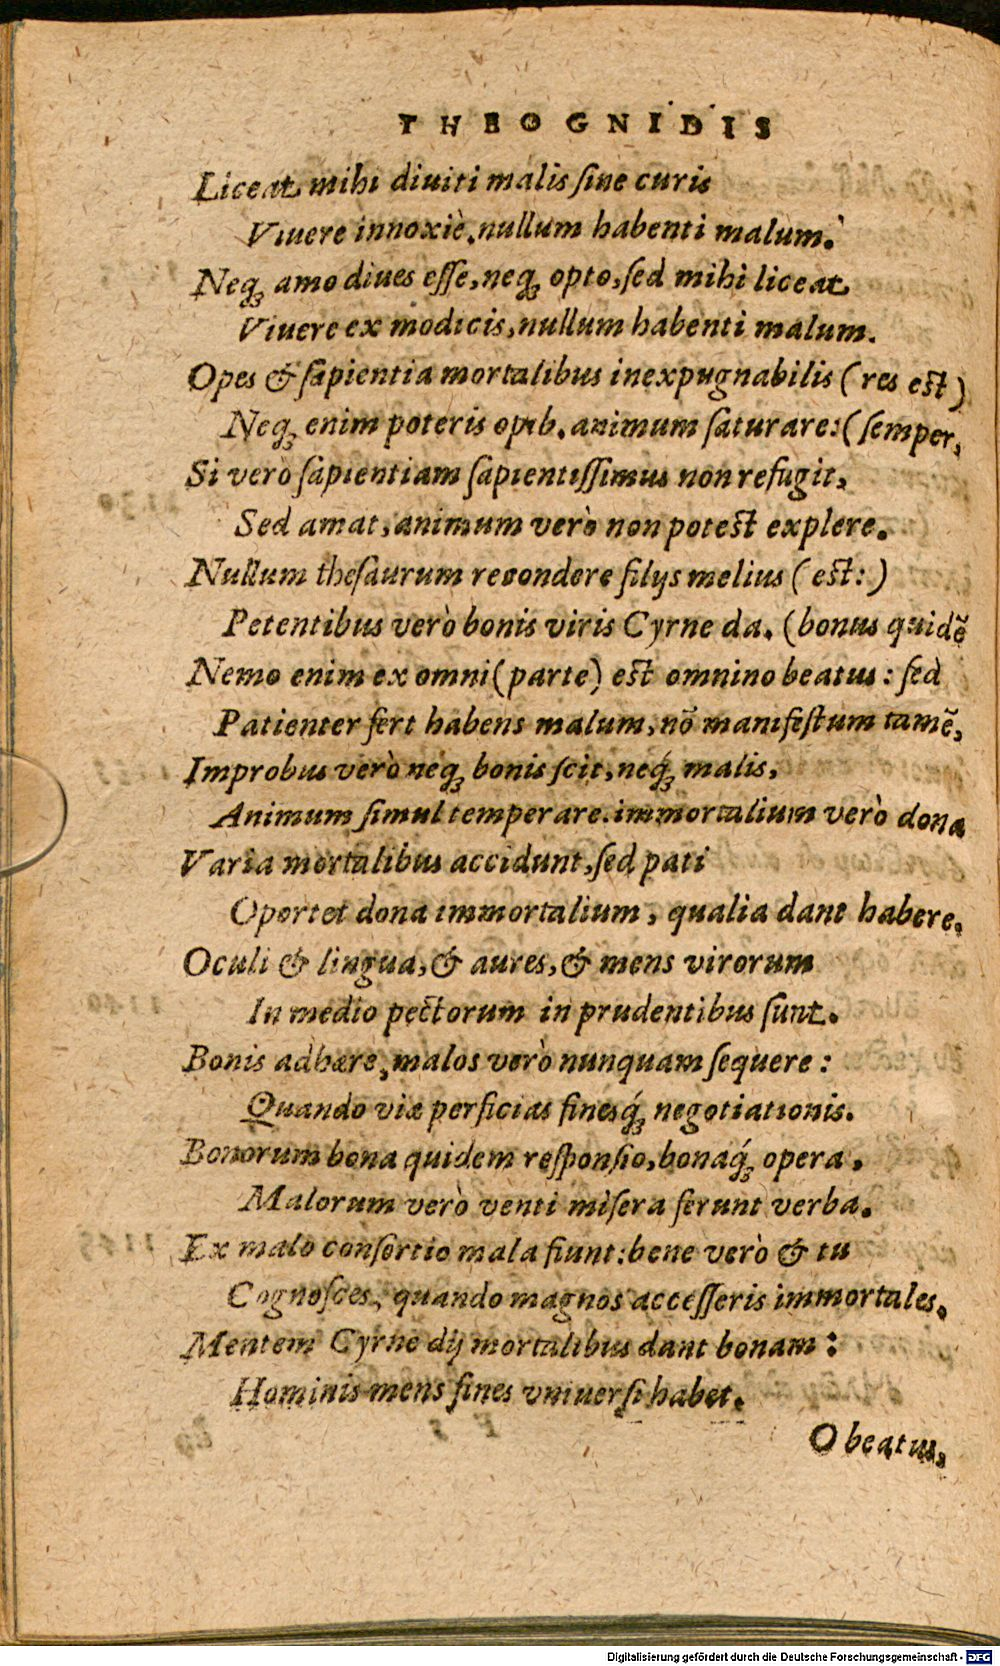 THEOGNIDIS
Liceat mihi diuiti malis ſine curis
Viuere innoxiè, nullum habenti malum.
Neq; amo diues eſſe, neq; opto, ſed mihi liceat
Viuere ex modicis, nullum habenti malum.
Opes & ſapientia mortalibus inexpugnabilis (res est)
Neq; enim poteris opib. animum ſaturare: (ſemper,
Si verò ſapientiam ſapientiſſimus non refugit,
Sed amat, animum verò non potest explere.
Nullum theſaurum recondere filijs melius (est:)
Petentibus verò bonis viris Cyrne da. (bonus quidē
Nemo enim ex omni (parte) est omnino beatus: ſed
Patienter fert habens malum, nō manifeſtum tamē,
Improbus verò neq; bonis ſcit, neq́; malis,
Animum ſimul temperare. immortalium verò dona
Varia mortalibus accidunt, ſed pati
Oportet dona immortalium, qualia dant habere.
Oculi & lingua, & aures, & mens virorum
In medio pectorum in prudentibus ſunt.
Bonis adhære, malos verò nunquam ſequere:
Quando viæ perficias finesq́; negotiationis.
Bonorum bona quidem reſponſio, bonaq́; opera,
Malorum verò venti miſera ferunt verba.
Ex malo conſortio mala fiunt: bene verò & tu
Cognoſces, quando magnos acceſſeris immortales.
Mentem Cyrne dij mortalibus dant bonam:
Hominis mens fines vniuerſi habet.
O beatus,
Digitalisierung gefördert durch die Deutsche Forschungsgemeinschaft - DFG